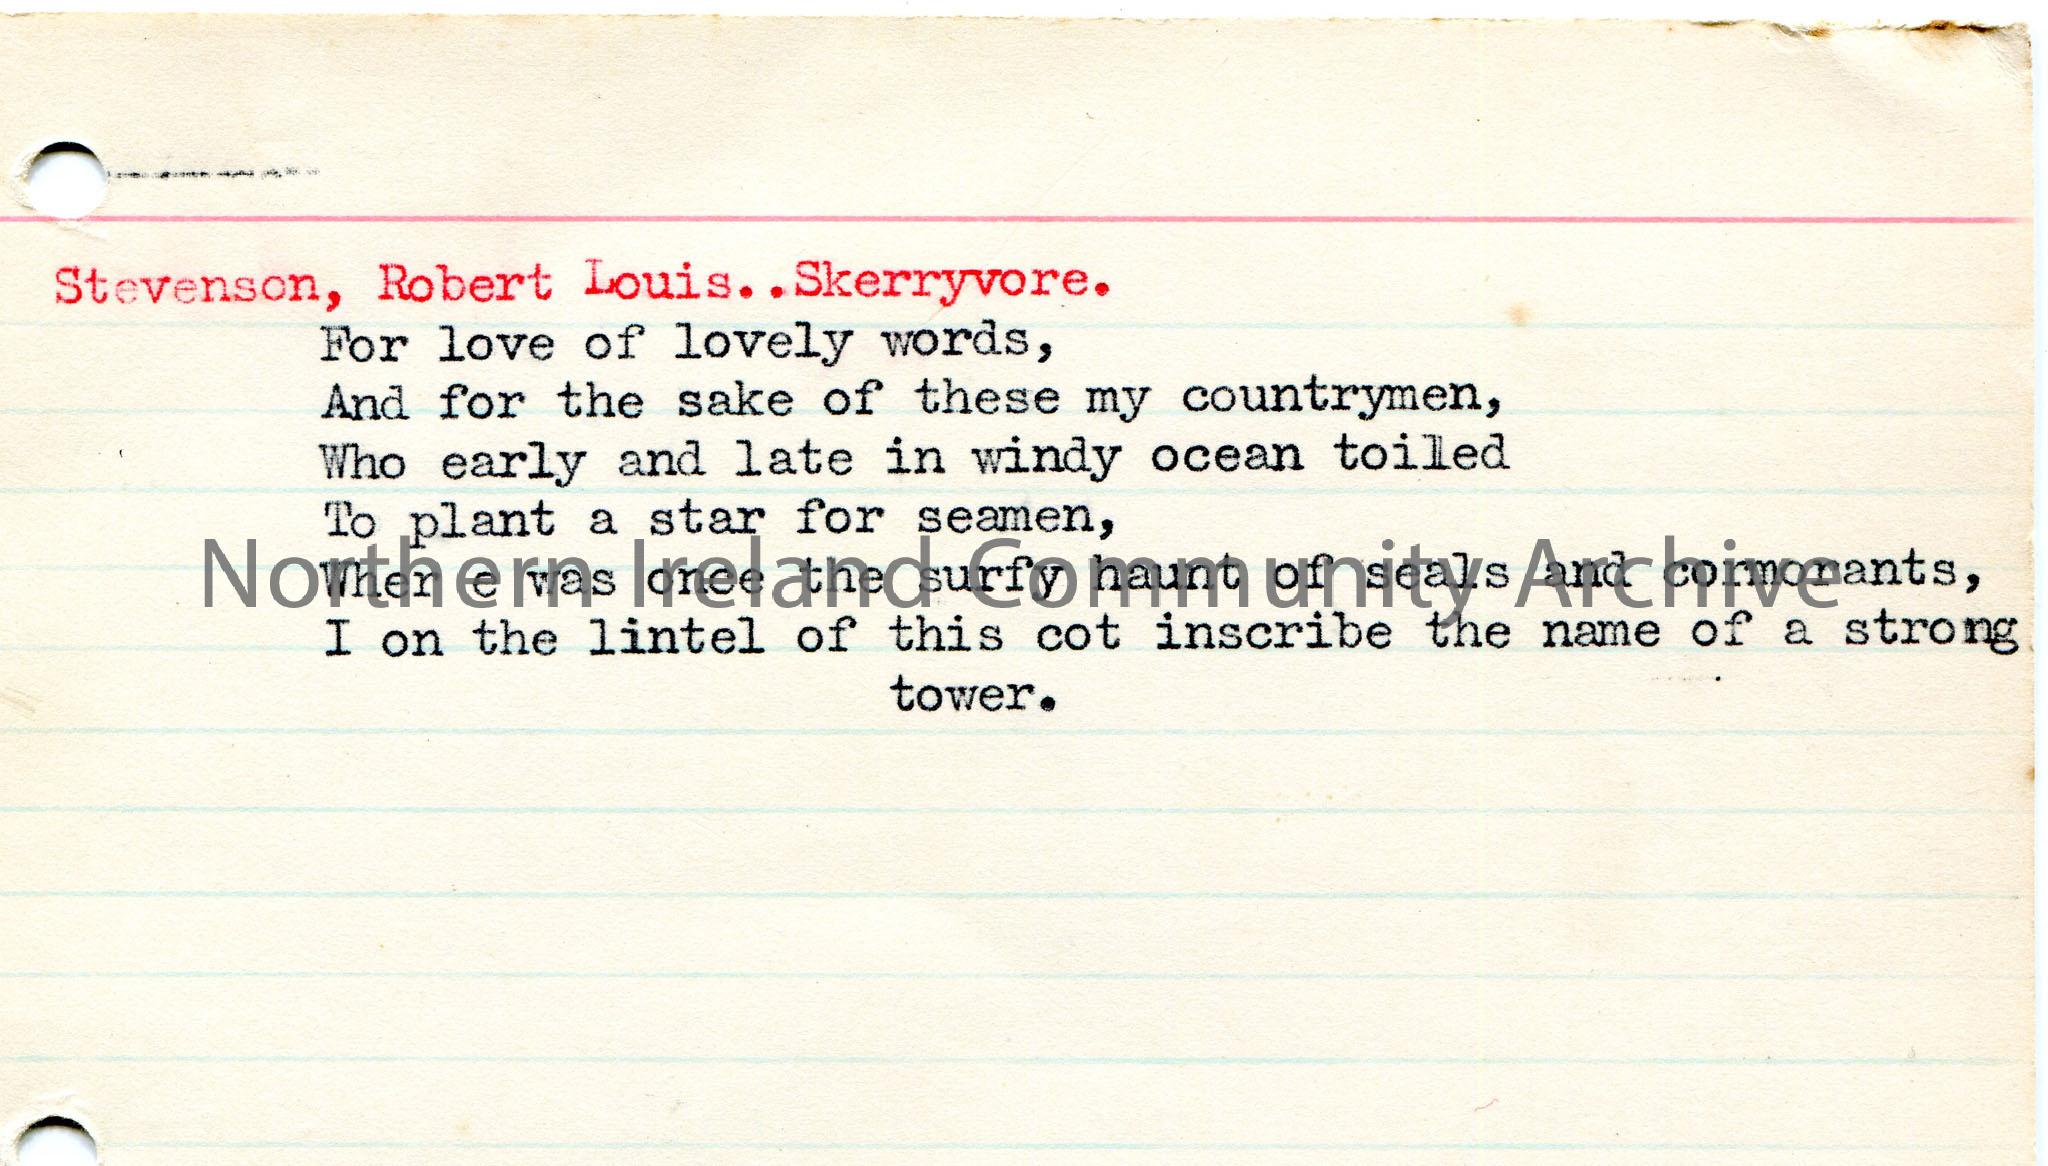 Stevenson, Robert Louis..Skerryvore.
For love of lovely words,
And for the sake of these my countrymen,
Who early and late in windy ocean toiled
To plant a star for seamen,
Wher e was once the surfy haunt of seals and cormorants,
Northern Ireland Community Archive
I on the lintel of this cot inscribe the name of a strong
tower.